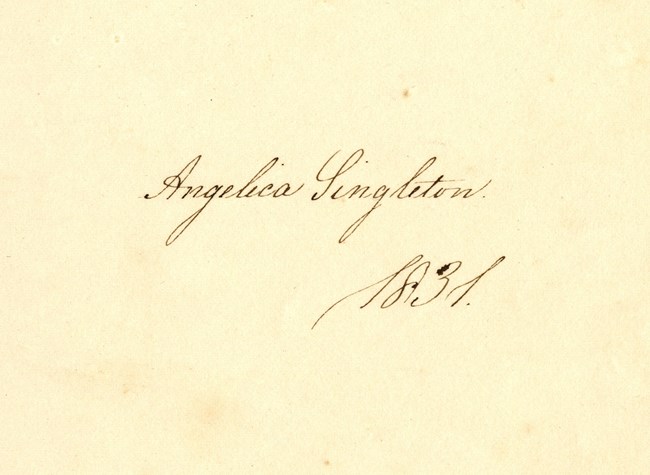 Angelica Singleton.
1831.